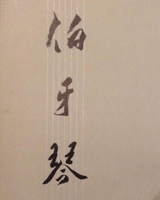 伯牙琴